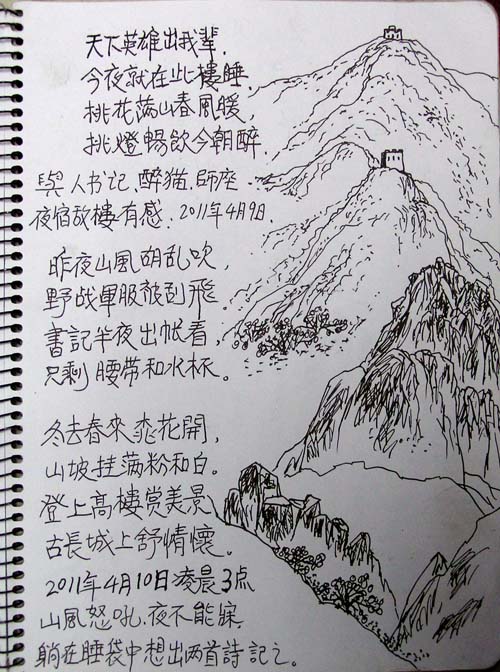 天下英雄出我輩，
今夜就在此樓睡，
桃花滿山春風暖，
挑燈暢飲今朝醉。
與人书记、醉猫、師座
夜宿敌樓有感. 2011年4月9日.
昨夜山風胡乱吹，
野战軍服被刮飛
書記半夜出帐看，
只剩腰带和水杯。
冬去春來桃花開，
山坡挂满粉和白。
登上高樓赏美景
古長城上舒情懷。
2011年4月10日凌晨3点
山風怒吼.夜不能寐.
躺在睡袋中想出两首詩記之。